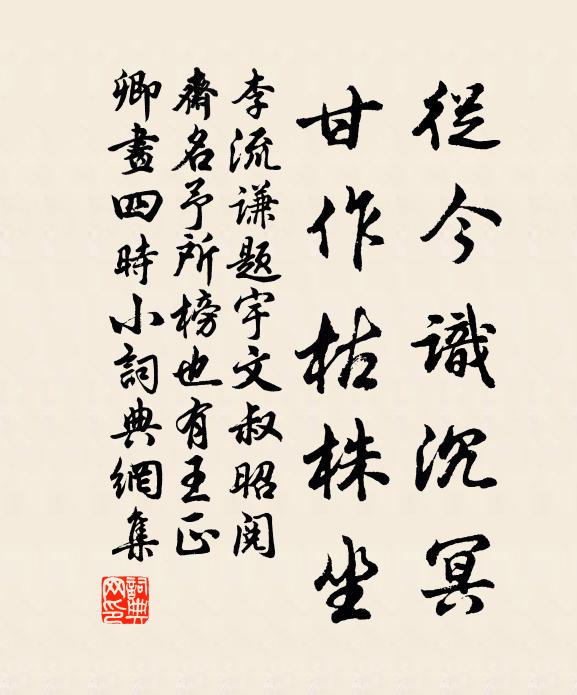 從今識沉冥
甘作枯株坐
李流謙題宇文叔昭閱
齋名予所榜也有王正
卿畫四時小詞典網集
詞典
网印